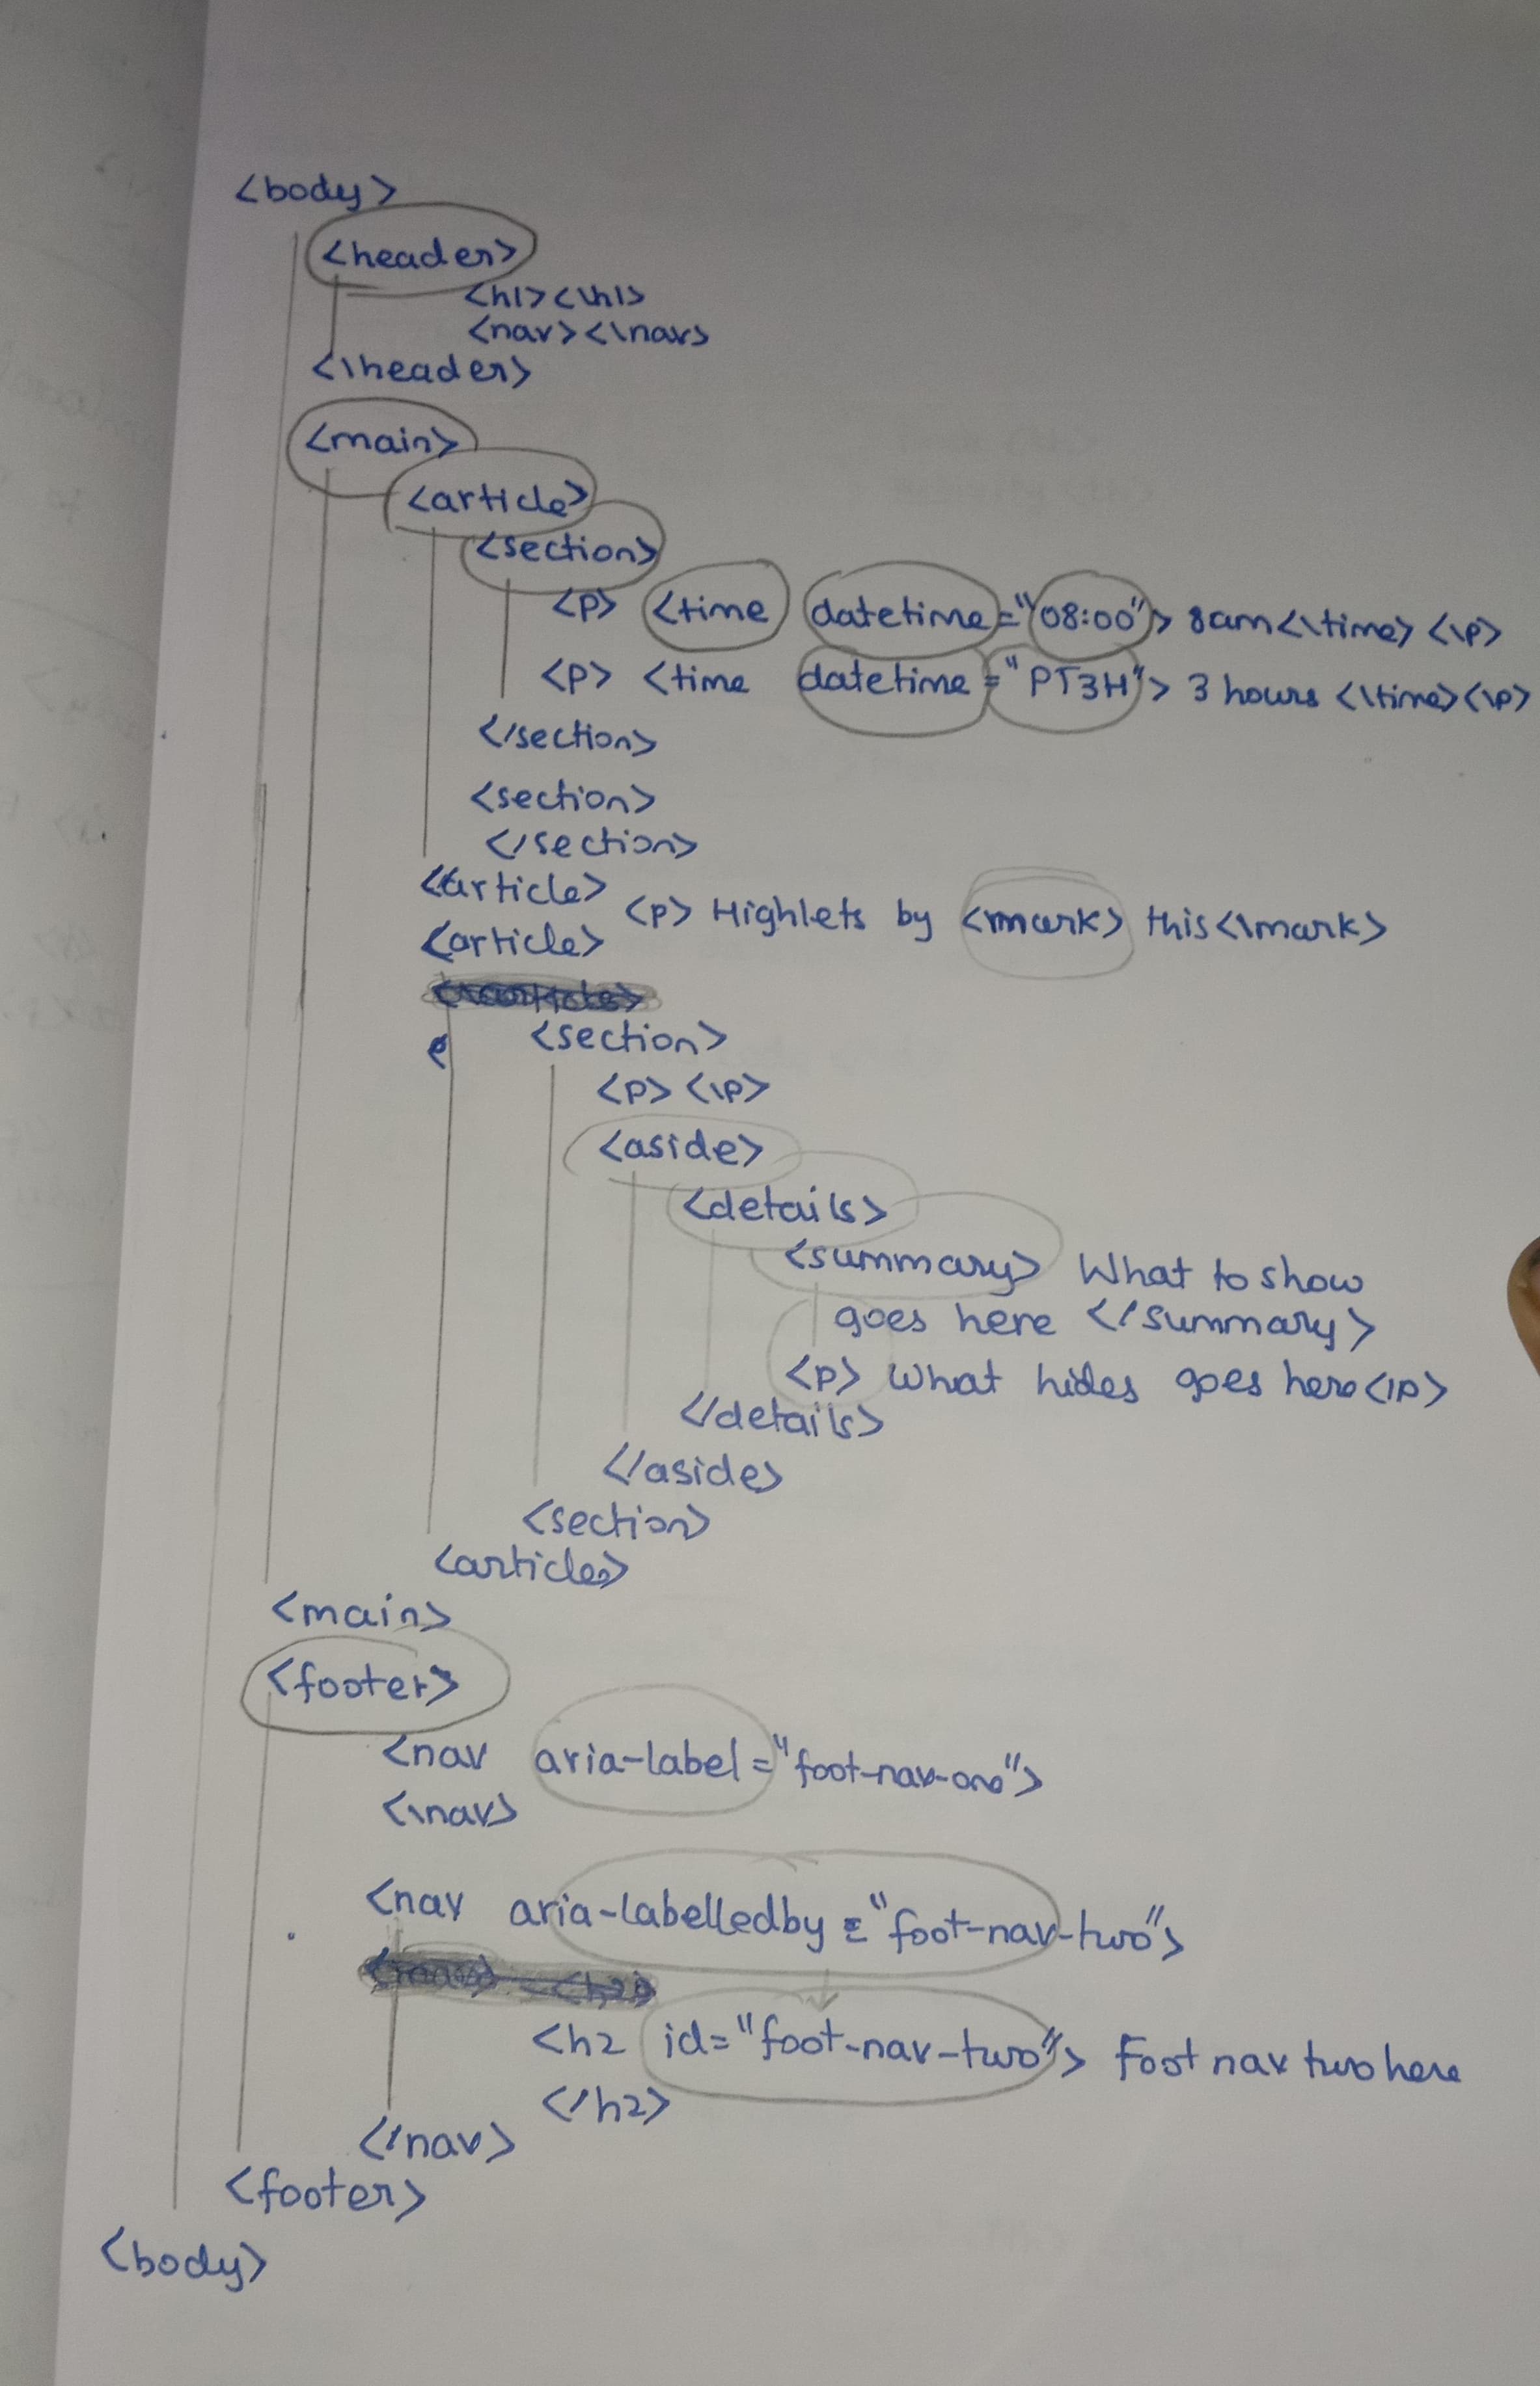 <body>
<header>
<h1><\h1>
<nav><\nav>
<\header>
<main>
<article>
<section>
<p> <time datetime="08:00"> 8am<\time> <\p>
<p> <time datetime="PT3H"> 3 hours <\time><\p>
</section>
<section>
</section>
</article>
<article> <p> Highlets by <mark> this<\mark>
<section>
<p> <\p>
<aside>
<details>
<summary> What to show
goes here </summary>
<p> What hides goes here<\p>
</details>
</aside>
<section>
<article>
<main>
<footer>
<nav aria-label="foot-nav-one">
<\nav>
<nav aria-labelledby="foot-nav-two">
<h2 id="foot-nav-two"> Foot nav two here
</h2>
</nav>
<footer>
<body>